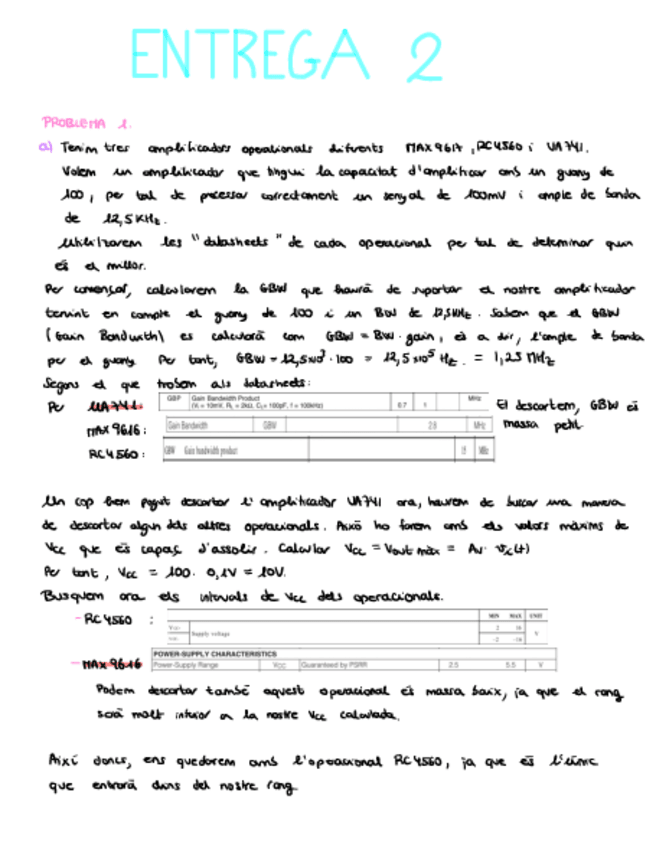 ENTREGA 2
PROBLEMA 1.
a) Tenim tres amplificadors operacionals diferents MAX9617, RC4560 i UA741.
Volem un amplificador que tingui la capacitat d'amplificar amb un guany de
100, per tal de processar correctament un senyal de 100mV i ample de banda
de 12,5KHz.
Utilitzarem les "datasheets" de cada operacional per tal de determinar quin
és el millor.
Per començar, calcularem la GBW que haurà de suportar el nostre amplificador
tenint en compte el guany de 100 i un BW de 12,5KHz. Sabem que el GBW
(Gain Bandwith) es calcularà com GBW = BW · gain, és a dir, l'ample de banda
per el guany. Per tant, GBW = 12,5x10³ · 100 = 12,5x10⁵ Hz. = 1,25 MHz
Segons el que trobem als datasheets:
Per UA741: GBP Gain Bandwidth Product (Vi = 10mV, RL = 2kΩ, CL = 100pF, f = 100kHz) 0.7 1 MHz El descartem, GBW és
MAX9616: Gain Bandwidth GBW 2.8 MHz massa petit.
RC4560: GBW Gain bandwidth product 15 MHz
Un cop hem pogut descartar l'amplificador UA741 ara, haurem de buscar una manera
de descartar algun dels altres operacionals. Això ho farem amb els valors màxims de
Vcc que és capaç d'assolir. Calcular Vcc = Vout màx = Av ·
Per tant, Vcc = 100 · 0,1V = 10V.
Busquem ara els intervals de Vcc dels operacionals.
- RC4560 : MIN MAX UNIT
Supply voltage 2 16 V
-2 -16
POWER-SUPPLY CHARACTERISTICS
- MAX9616 Power-Supply Range VCC Guaranteed by PSRR 2.5 5.5 V
Podem descartar també aquest operacional és massa baix, ja que el rang
serà molt inferior a la nostre Vcc calculada.
Així doncs, ens quedarem amb l'operacional RC4560, ja que és l'únic
que entrarà dins del nostre rang.